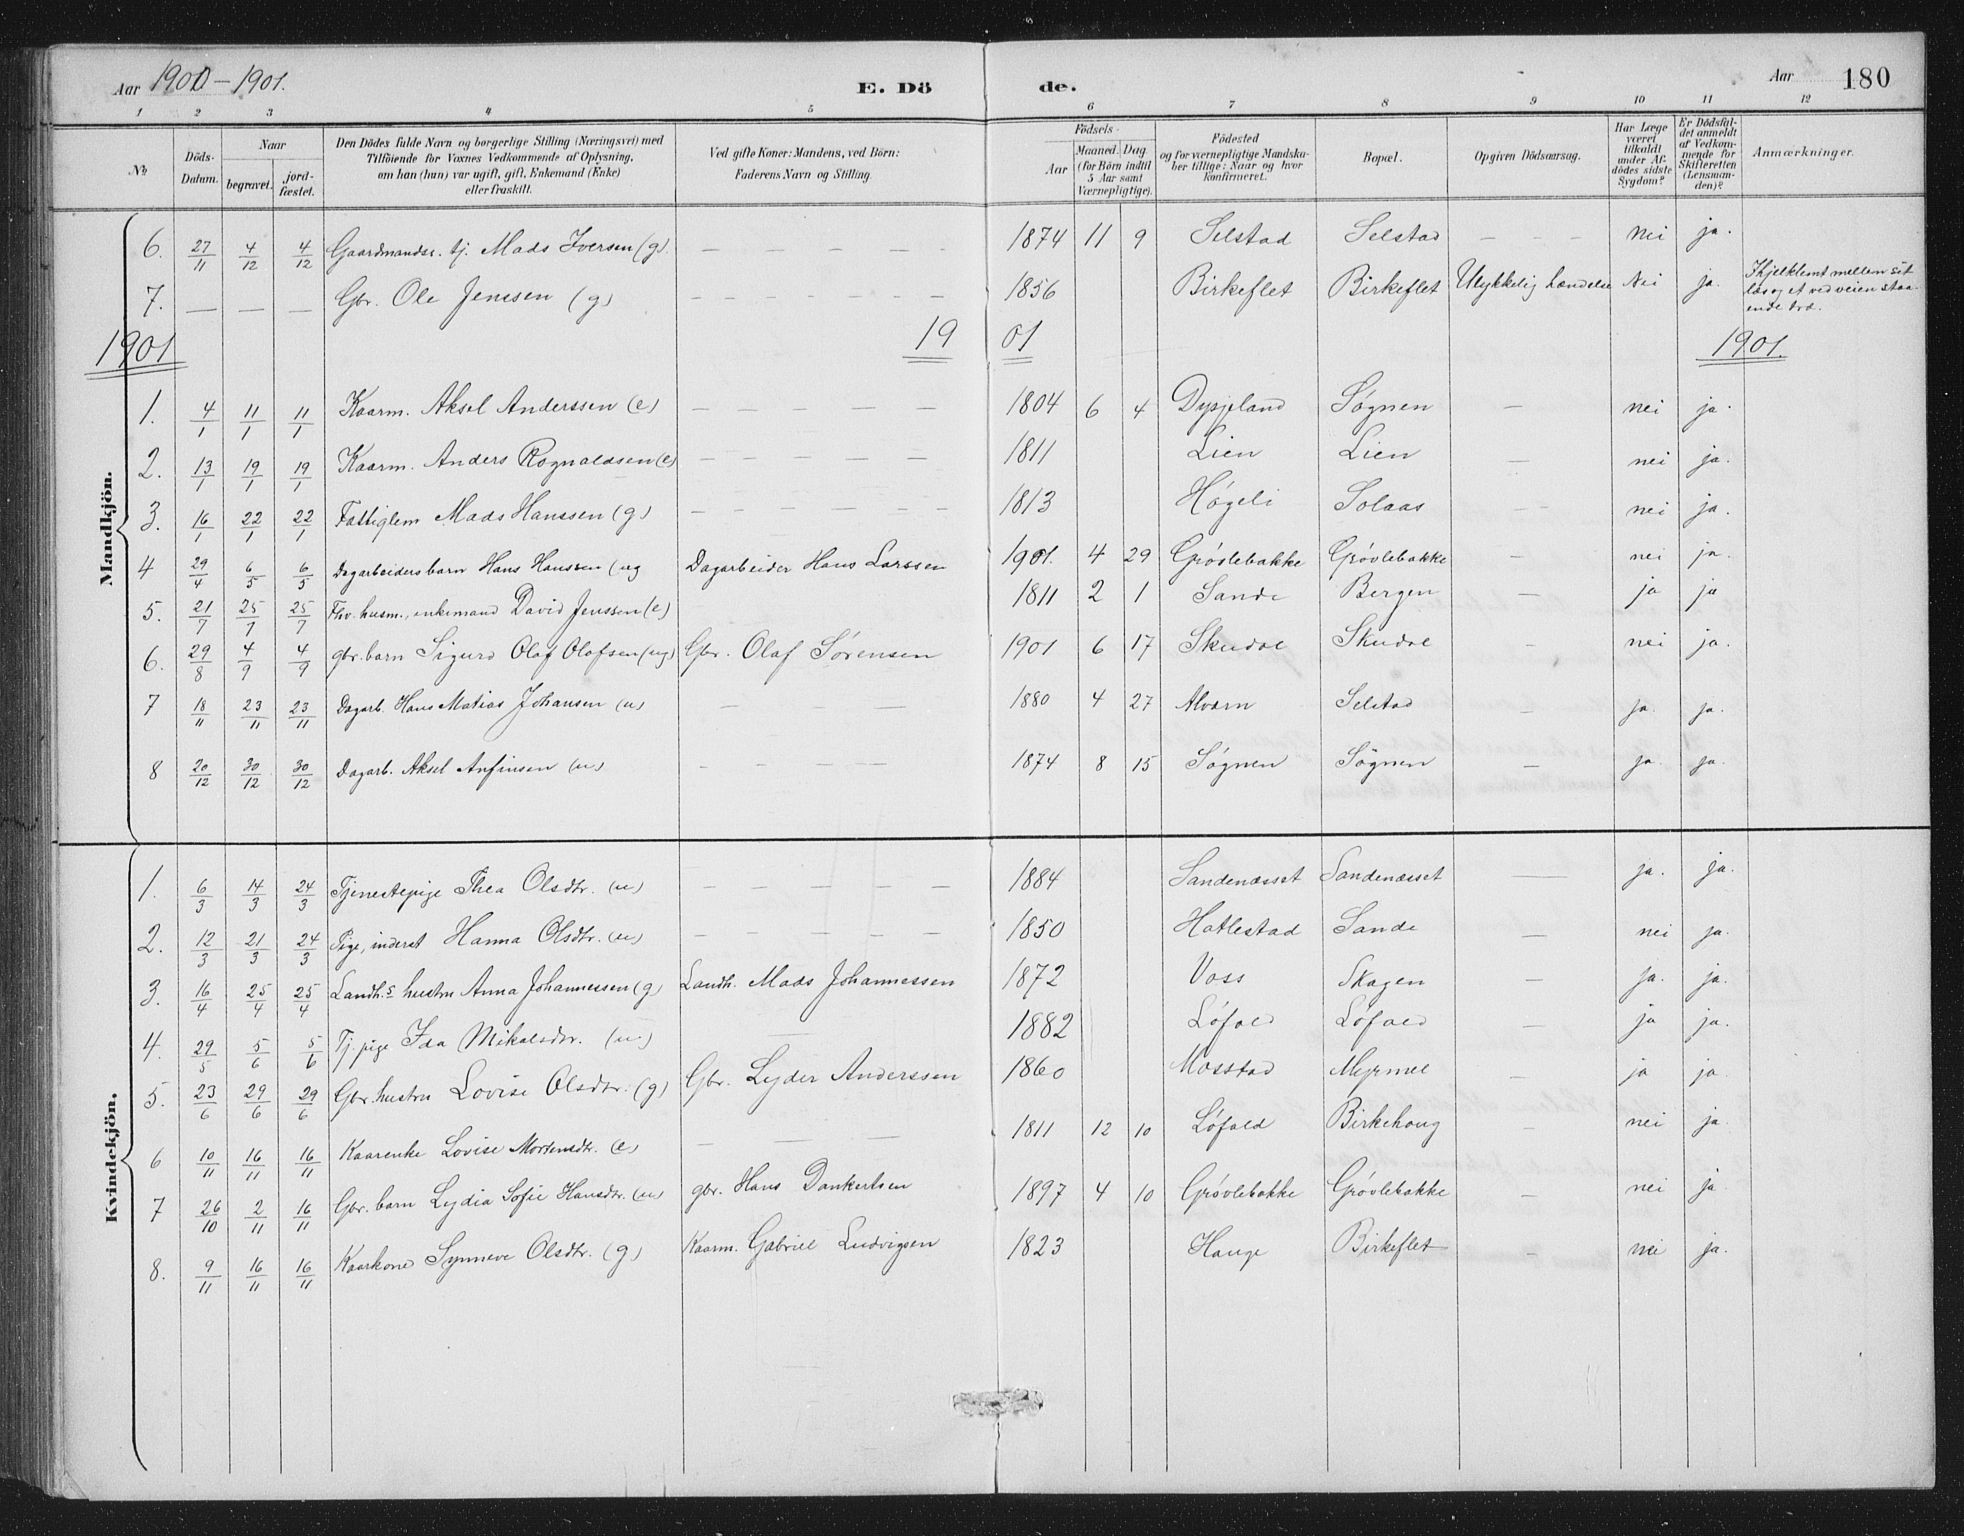 Aar 1900-1901. E. Döde. Aar 180
1 2 3 4 5 6 7 8 9 10 11 12
No
Döds-Datum.
Naar
begravet.
jord-fæstet.
Den Dödes fulde Navn og borgerlige Stilling (Næringsvei) med
Tilföiende for Voxnes Vedkommende af Oplysning,
om han (hun) var ugift, gift, Enkemand (Enke)
eller fraskilt.
Ved gifte Koner: Mandens, ved Börn:
Faderens Navn og Stilling.
Födsels-
Aar
Maaned. Dag
(for Börn indtil
5 Aar samt
Værnepligtige).
Födested
og for værnepligtige Mandska-
ber tillige: Naar og hvor
konfirmeret.
Bopæl.
Opgiven Dödsaarsag.
Har Læge
været
tilkaldt
under Af-
dödes sidste
Sygdom?
Er Dödsfal-
det anmeldt
af Vedkom-
mende for
Skifteretten
(Lensman-
den)?
Anmærkninger.
Mandkjön.
6. 27/11 4/12 4/12 Gaardmandss. tj. Mads Iversen (g). — — — — — 1874 11 9 Selstad Selstad — — — nei ja.
7. — — — Gbr. Ole Jenssen (g) — — — — — — 1856 Birkeflet Birkeflet Ulykkelig hændelse nei ja. Ihjelklemt mellem sit
læs og et ved veien staa-
ende træ.
1901 1901 1901.
1. 4/1 11/1 11/1 Kaarm. Aksel Anderssen (e) — — — — — 1804 6 4 Dysjeland Søgnen — nei ja.
2. 13/1 19/1 19/1 Kaarm. Anders Rognaldsen (e) — — — — — 1811 Lien Lien — nei ja.
3. 16/1 22/1 22/1 Fattiglem Mads Hanssen (g) — — — — — 1813 Høgeli Solaas — nei ja.
4 29/4 6/5 6/5 Dagarbeiders barn Hans Hanssen (ug Dagarbeider Hans Larssen 1901. 4 29 Grøvlebakke Grøvlebakke — nei ja.
5. 21/7 25/7 25/7 Fhv. husm., enkemand David Jenssen (e) 1811 2 1 Sande Bergen — ja ja
6. 29/8 4/9 4/9 gbr. barn Sigurd Olaf Olafsen (ug) Gbr. Olaf Sørensen 1901 6 17 Skudal Skudal — nei ja.
7 18/11 23/11 23/11 Dagarb. Hans Matias Johansen (u) — — 1880 4 27 Alværn Selstad — ja. ja.
8 20/12 30/12 30/12 Dagarb. Aksel Anfinsen (u) — — — 1874 8 15 Søgnen Søgnen — ja. ja.
Kvindekjön.
1. 6/3 14/3 24/3 Tjenestepige Thea Olsdtr. (u) — — — — — 1884 Sandenæsset Sandenæsset — ja. ja.
2. 12/3 21/3 24/3 Pige, inderst Hanna Olsdtr. (u) — — — — — 1850 Hatlestad Sande — nei ja.
3. 16/4 25/4 25/4 Landh.s hustru Anna Johannessen (g) Landh. Mads Johannessen 1872 Voss Skagen — ja. ja.
4. 29/5 5/6 5/6 Tj. pige Ida Mikalsdtr. (u.) — 1882 Løfald Løfald — ja ja.
5. 23/6 29/6 29/6 Gbr. hustru Lovise Olsdtr. (g) Gbr. Lyder Anderssen 1860 Mosstad Myrmel — ja ja
6 10/11 16/11 16/11 Kaarenke Lovise Mortensdtr. (e) — — — — 1811 12 10 Løfald Birkehaug — nei ja.
7 26/10 2/11 16/11 Gbr. barn Lydia Sofie Hansdtr. (u) gbr. Hans Dankertsen 1897 4 10 Grøvlebakke Grøvlebakke — nei ja.
8. 9/11 16/11 16/11 Kaarkone Synneve Olsdtr. (g) Kaarm. Gabriel Ludvigsen 1823 Hauge Birkeflet — nei ja.